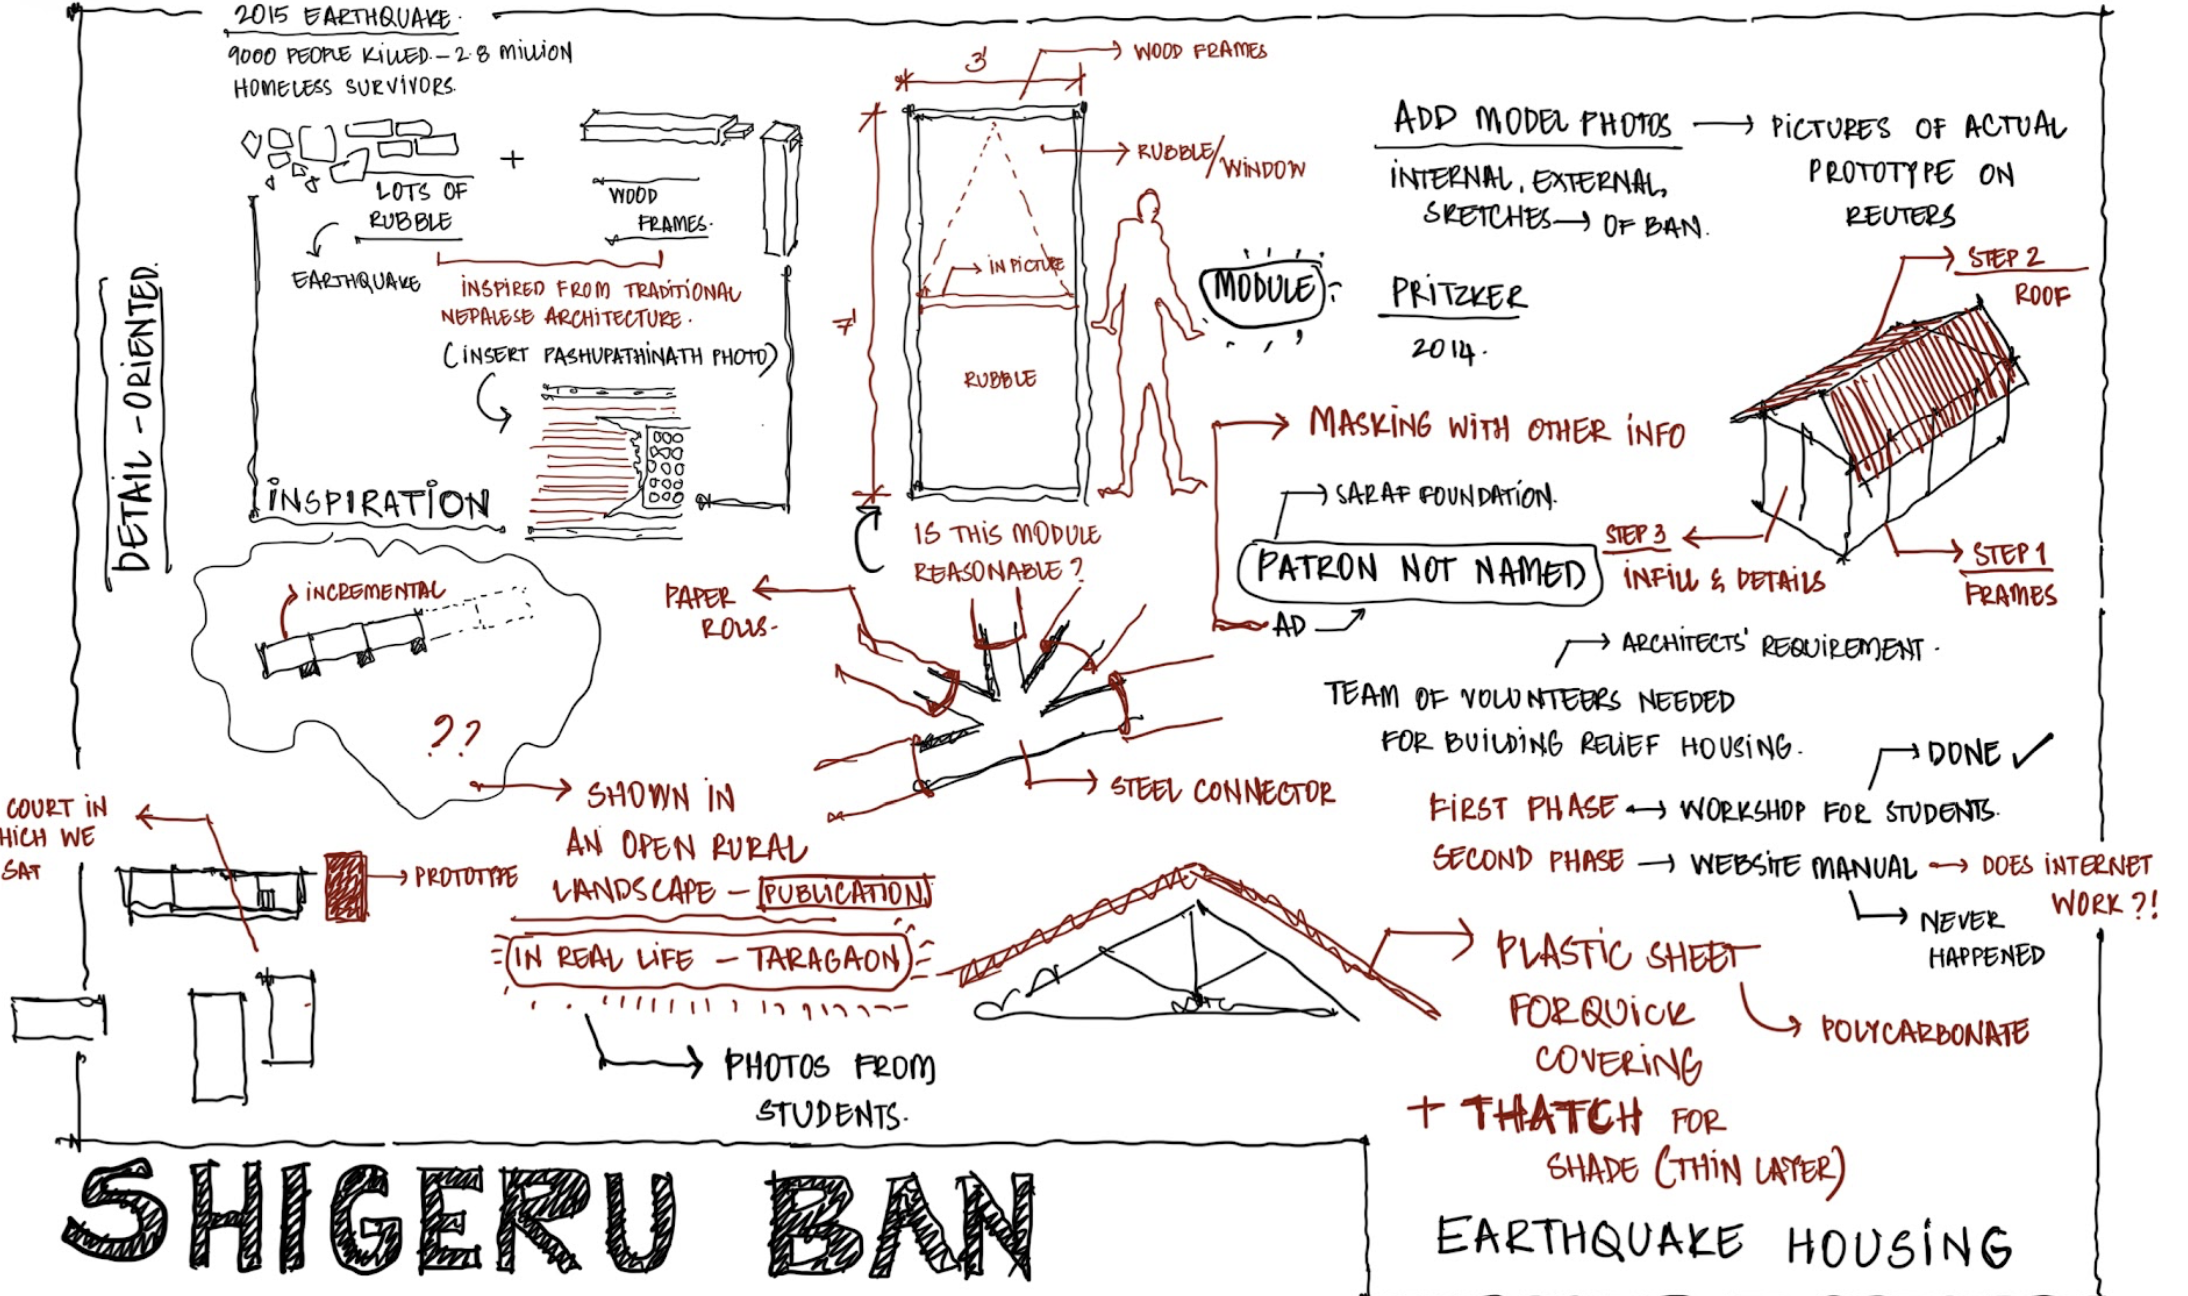 2015 EARTHQUAKE.
9000 PEOPLE KILLED. – 2.8 MILLION
HOMELESS SURVIVORS.
LOTS OF
RUBBLE
+
WOOD
FRAMES.
EARTHQUAKE
INSPIRED FROM TRADITIONAL
NEPALESE ARCHITECTURE.
(INSERT PASHUPATHINATH PHOTO)
INSPIRATION
DETAIL - ORIENTED.
3'
WOOD FRAMES
RUBBLE/WINDOW
7'
IN PICTURE
RUBBLE
MODULE:
IS THIS MODULE
REASONABLE?
ADD MODEL PHOTOS → PICTURES OF ACTUAL
PROTOTYPE ON
REUTERS
INTERNAL, EXTERNAL,
SKETCHES → OF BAN.
PRITZKER
2014.
STEP 2
ROOF
STEP 3
INFILL & DETAILS
STEP 1
FRAMES
MASKING WITH OTHER INFO
SARAF FOUNDATION.
PATRON NOT NAMED
AD
ARCHITECTS' REQUIREMENT.
TEAM OF VOLUNTEERS NEEDED
FOR BUILDING RELIEF HOUSING.
DONE ✓
FIRST PHASE ↔ WORKSHOP FOR STUDENTS.
SECOND PHASE → WEBSITE MANUAL → DOES INTERNET
WORK?!
NEVER
HAPPENED
INCREMENTAL
??
PAPER
ROLLS.
STEEL CONNECTOR
SHOWN IN
AN OPEN RURAL
LANDSCAPE – PUBLICATION
IN REAL LIFE – TARAGAON
PHOTOS FROM
STUDENTS.
COURT IN
HICH WE
SAT
PROTOTYPE
PLASTIC SHEET
FOR QUICK
COVERING
POLYCARBONATE
+ THATCH FOR
SHADE (THIN LAYER)
SHIGERU BAN
EARTHQUAKE HOUSING